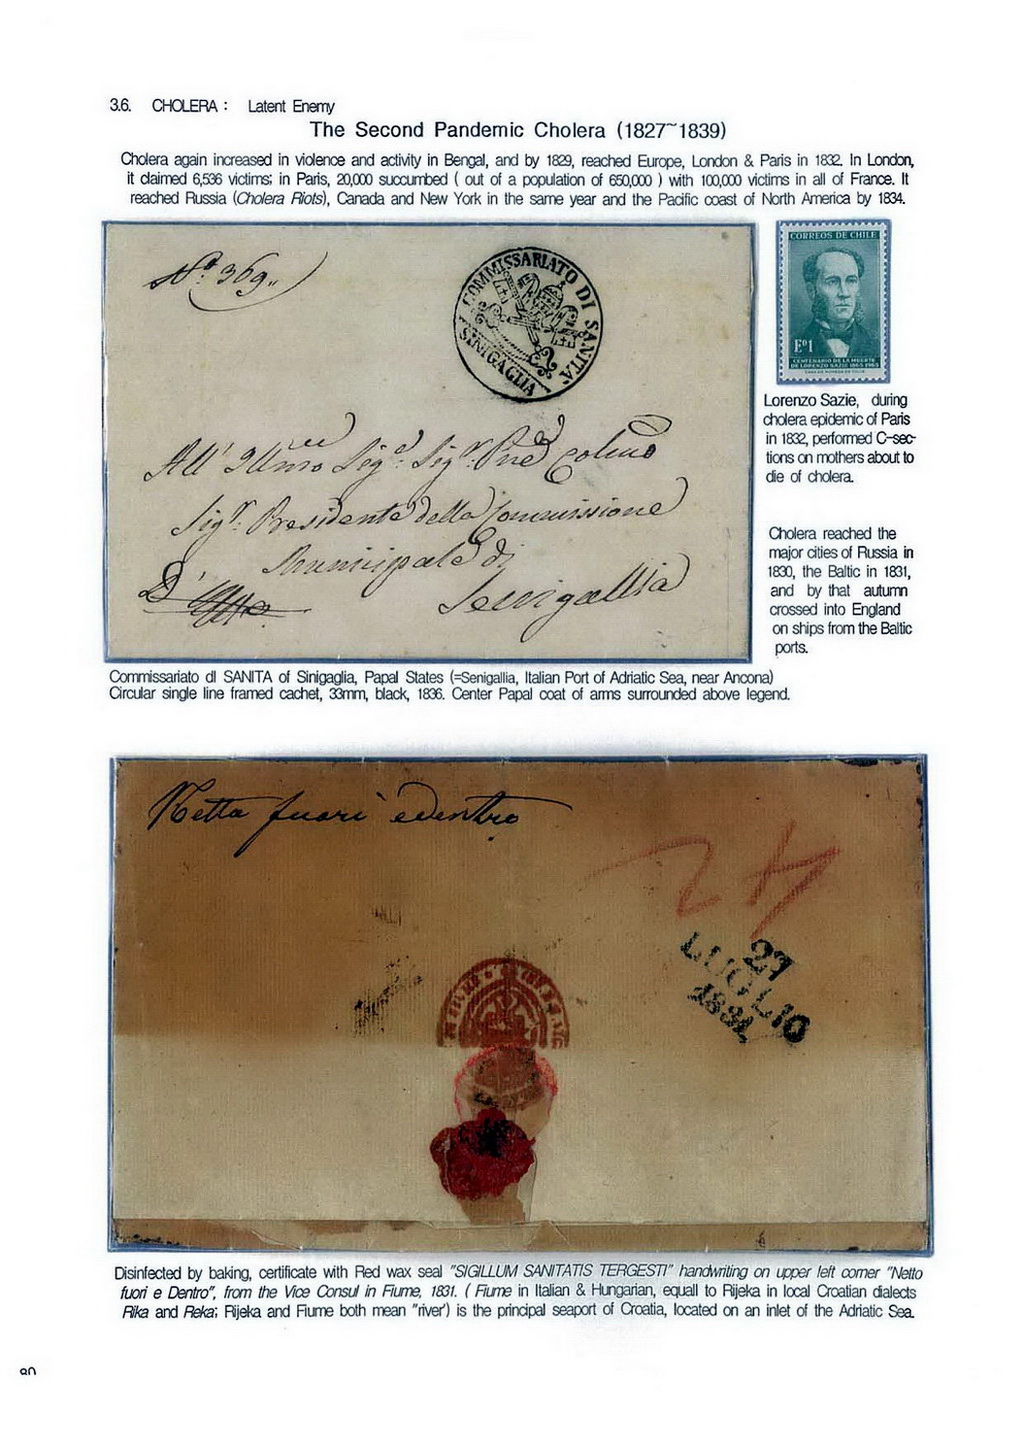 3.6. CHOLERA : Latent Enemy
The Second Pandemic Cholera (1827~1839)
Cholera again increased in violence and activity in Bengal, and by 1829, reached Europe, London & Paris in 1832. In London,
it claimed 6,536 victims; in Paris, 20,000 succumbed ( out of a population of 650,000 ) with 100,000 victims in all of France. It
reached Russia (Cholera Riots), Canada and New York in the same year and the Pacific coast of North America by 1834.
Nº 369,,
COMMISSARIATO DI SANITA'
SINIGAGLIA
CORREOS DE CHILE
Eº1
CENTENARIO DE LA MUERTE
DE LORENZO SAZIE 1865 1965
Lorenzo Sazie, during
cholera epidemic of Paris
in 1832, performed C-sec-
tions on mothers about to
die of cholera.
All' Illmo Sigr
Sigr Presidente della Commissione
Municipale di
Senigallia
Cholera reached the
major cities of Russia in
1830, the Baltic in 1831,
and by that autumn
crossed into England
on ships from the Baltic
ports.
Commissariato dl SANITA of Sinigaglia, Papal States (=Senigallia, Italian Port of Adriatic Sea, near Ancona)
Circular single line framed cachet, 33mm, black, 1836. Center Papal coat of arms surrounded above legend.
Netta fuori edentro
27
LUGLIO
1831
Disinfected by baking, certificate with Red wax seal "SIGILLUM SANITATIS TERGESTI" handwriting on upper left corner "Netto
fuori e Dentro", from the Vice Consul in Fiume, 1831. ( Fiume in Italian & Hungarian, equall to Rijeka in local Croatian dialects
Rika and Reka; Rijeka and Fiume both mean "river') is the principal seaport of Croatia, located on an inlet of the Adriatic Sea.